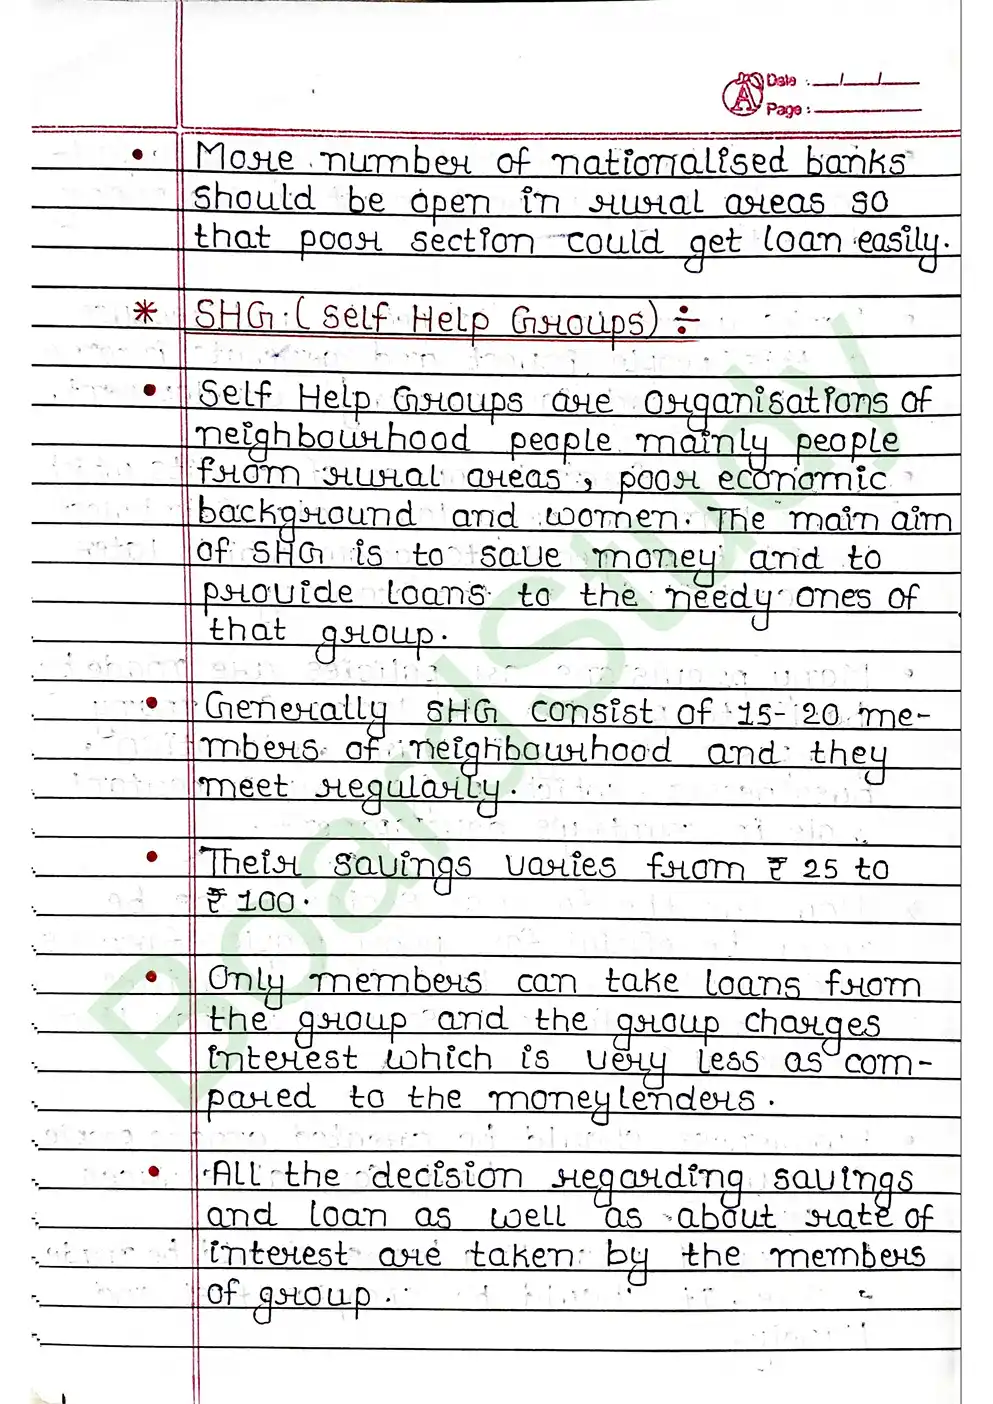 Date : __/__/__
Page :
• More number of nationalised banks
should be open in rural areas so
that poor section could get loan easily.
* SHG (Self Help Groups) ÷
• Self Help Groups are organisations of
neighbourhood people mainly people
from rural areas, poor economic
background and women. The main aim
of SHG is to save money and to
provide loans to the needy ones of
that group.
• Generally SHG consist of 15-20 me-
mbers of neighbourhood and they
meet regularly.
• Their savings varies from ₹ 25 to
₹ 100.
• Only members can take loans from
the group and the group charges
interest which is very less as com-
pared to the moneylenders.
• All the decision regarding savings
and loan as well as about rate of
interest are taken by the members
of group.
BoardStudy